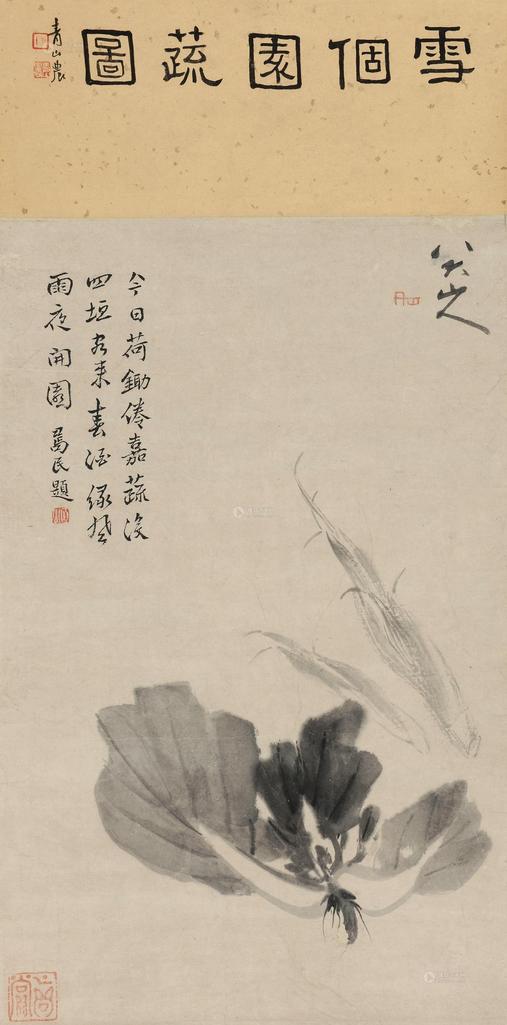 雪個園蔬圖
青山農
八大山人
今日荷鋤倦嘉蔬沒
四垣客來春酒綠
雨夜開園 萬民題